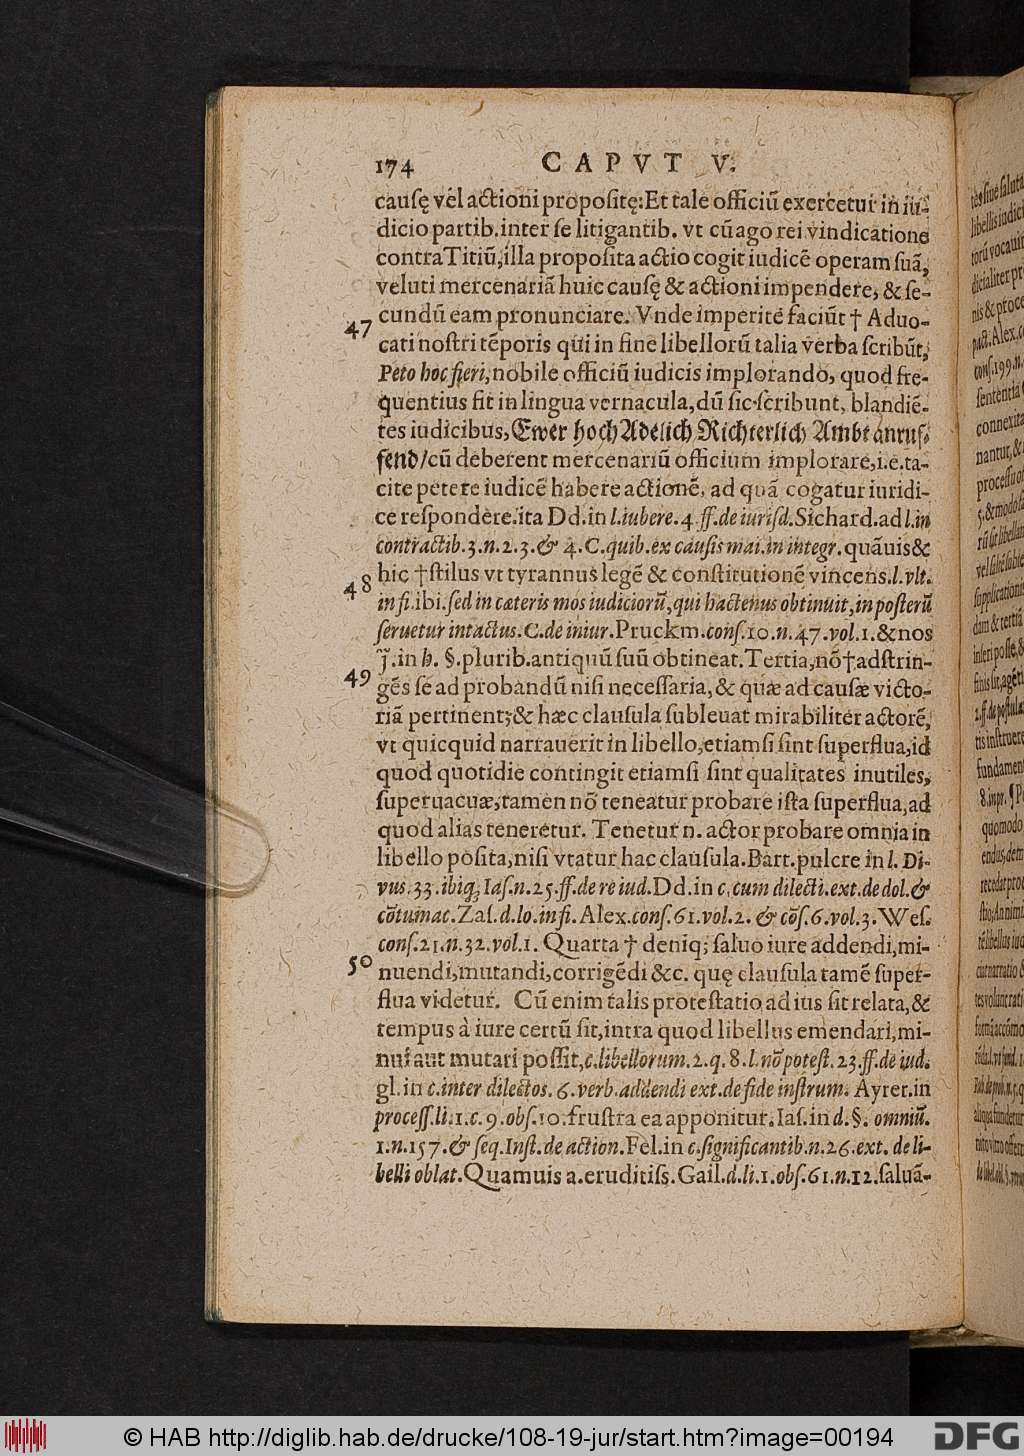 174 CAPVT V.
cauſę vel actioni propoſitę: Et tale officiũ exercetur in iu-
dicio partib. inter ſe litigantib. vt cũ ago rei vindicatione
contra Titiũ, illa propoſita actio cogit iudicẽ operam ſuã,
veluti mercenariã huic cauſę & actioni impendere, & ſe-
cundũ eam pronunciare. Vnde imperitè faciũt † Aduo-
47
cati noſtri tẽporis qui in fine libellorũ talia verba ſcribũt,
Peto hoc fieri, nobile officiũ iudicis implorando, quod fre-
quentius fit in lingua vernacula, dũ ſic ſcribunt, blandiẽ-
tes iudicibus, Ewer hoch Adelich Richterlich Ambt anruf-
fend/ cũ deberent mercenariũ officium implorare, i.e. ta-
cite petere iudicẽ habere actionẽ, ad quã cogatur iuridi-
ce reſpondere. ita Dd. in l. iubere. 4. ff. de iuriſd. Sichard. ad l. in
contractib. 3. n. 2. 3. & 4. C. quib. ex cauſis mai. in integr. quãuis &
hic † ſtilus vt tyrannus legẽ & conſtitutionẽ vincens. l. vlt.
48
in fi. ibi. ſed in cæteris mos iudiciorũ, qui hactenus obtinuit, in poſterũ
ſeruetur intactus. C. de iniur. Pruckm. conſ. 10. n. 47. vol. 1. & nos
j̃. in h. §. plurib. antiquũ ſuũ obtineat. Tertia, nõ † adſtrin-
49
gẽs ſe ad probandũ niſi neceſſaria, & quæ ad cauſæ victo-
riã pertinent; & hæc clauſula ſubleuat mirabiliter actorẽ,
vt quicquid narrauerit in libello, etiamſi ſint ſuperflua, id
quod quotidie contingit etiamſi ſint qualitates inutiles,
ſuperuacuæ, tamen nõ teneatur probare iſta ſuperflua, ad
quod alias teneretur. Tenetur n. actor probare omnia in
libello poſita, niſi vtatur hac clauſula. Bart. pulcre in l. Di-
vus. 33. ibiq; Iaſ. n. 25. ff. de re iud. Dd. in c. cum dilecti. ext. de dol. &
cõtumac. Zaſ. d. lo. in fi. Alex. conſ. 61. vol. 2. & cõſ. 6. vol. 3. Weſ.
conſ. 21. n. 32. vol. 1. Quarta † deniq; ſaluo iure addendi, mi-
50
nuendi, mutandi, corrigẽdi &c. quę clauſula tamẽ ſuper-
flua videtur. Cũ enim talis proteſtatio ad ius ſit relata, &
tempus à iure certũ ſit, intra quod libellus emendari, mi-
nui aut mutari poſſit, c. libellorum. 2. q. 8. l. nõ poteſt. 23. ff. de iud.
gl. in c. inter dilectos. 6. verb. addendi ext. de fide inſtrum. Ayrer. in
proceſſ. li. 1. c. 9. obſ. 10. fruſtra ea apponitur. Iaſ. in d. §. omniũ.
1. n. 157. & ſeq. Inſt. de action. Fel. in c. ſignificantib. n. 26. ext. de li-
belli oblat. Quamuis a. eruditiſs. Gail. d. li. 1. obſ. 61. n. 12. ſaluã-
© HAB http://diglib.hab.de/drucke/108-19-jur/start.htm?image=00194
DFG